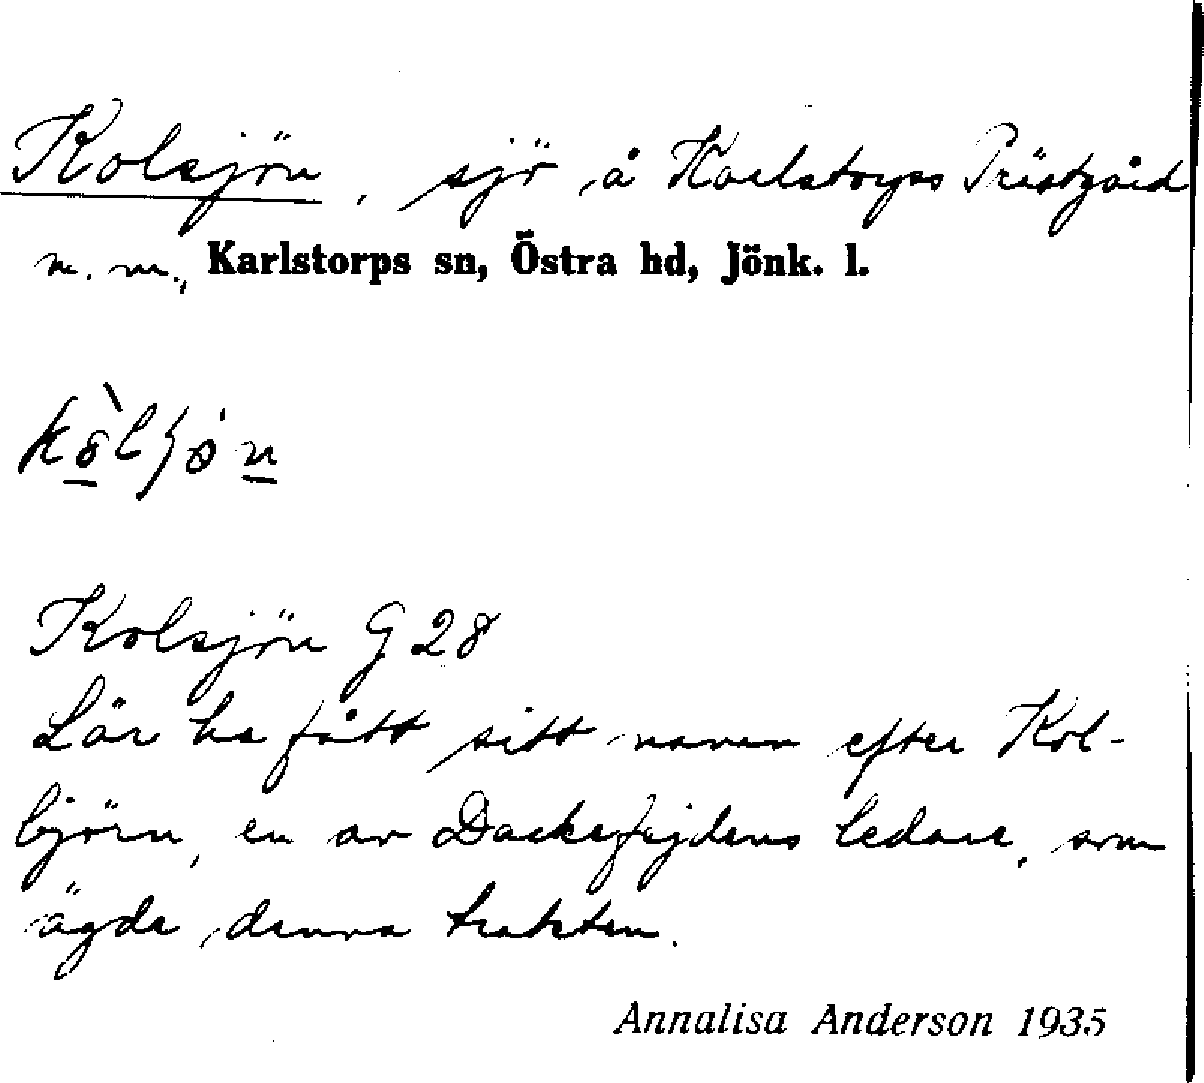 Kolsjön, sjö å Karlstorps Prästgård
m. m., Karlstorps sn, Östra hd, Jönk. l.
Kolsjön G 28
Lär ha fått sitt namn efter Kol-
björn, en av Dackefejdens ledare, som
ägde denna trakten.
Annalisa Anderson 1935